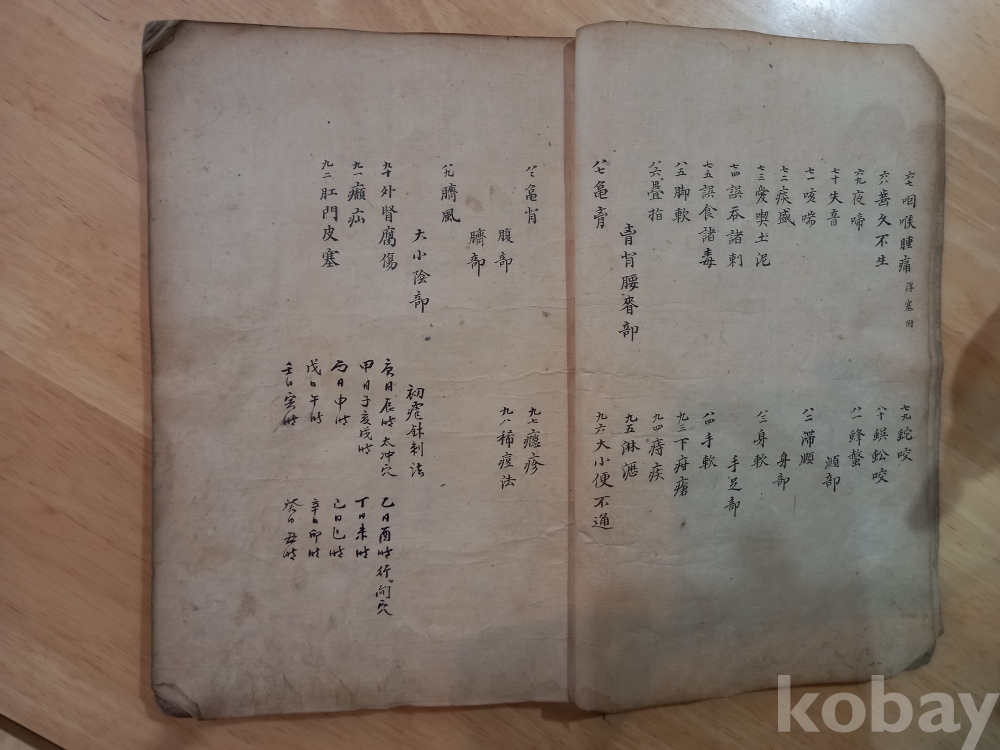 六七咽喉腫痛 浮塞同
六八 久不生
六九夜啼
七十失音
七一咳喘
七二痰盛
七三愛喫土泥
七四誤吞諸刺
七五誤食諸毒
八五脚軟
八六疊指
背腰脊部
八七龜
七九蛇咬
八十蜈蚣咬
八一蜂螫
頤部
八二滯頤
身部
八三身軟
手足部
八四手軟
九三下疳瘡
九四痔疾
九五淋瀝
九六大小便不通
八八龜背
腹部
臍部
八九臍風
大小陰部
九十外腎腐傷
九一癩疝
九二肛門皮塞
九七癮疹
九八稀痘法
初瘧針刺法
庚日辰時太冲穴
甲日子亥戌時
丙日申時
戊日午時
壬日寅時
乙日酉時行间穴
丁日未時
己日巳時
辛日卯時
癸日丑時
kobay